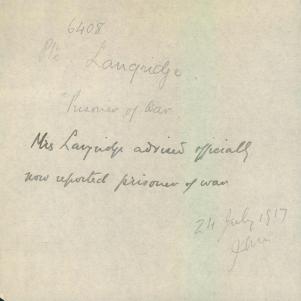 6408
Pte Langridge.
Prisoner of War
Mrs Langridge advised officially
now reported prisoner of war
24 July 1917